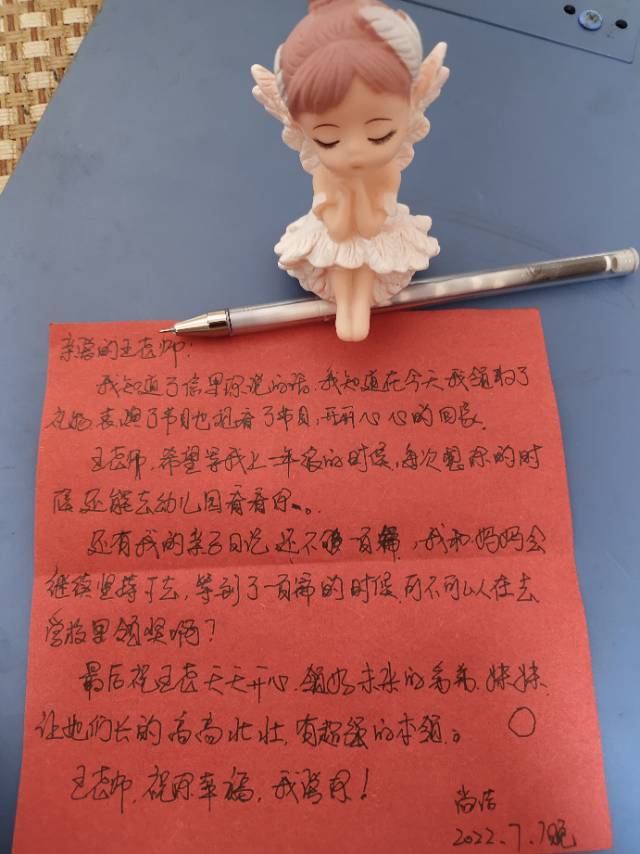 亲爱的王老师：
我知道了信里你说的话，我知道在今天我领取了
礼物，表演了节目也观看了节目，开开心心的回家。
王老师，希望等我上一年级的时候，每次想你的时
候还能去幼儿园看看你。
还有我的亲子日记还不够百篇，我和妈妈会
继续坚持下去，等到了一百篇的时候，可不可以在去
学校里领奖啊？
最后祝王老天天开心，领好未来的弟弟、妹妹，
让她们长的高高壮壮，有超强的本领。
王老师，祝你幸福，我爱你！
尚洁
2022.7.7晚